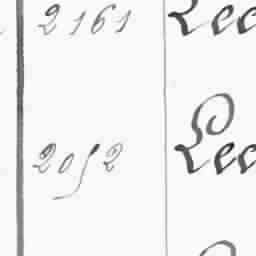 2161 Lec
2052 Lec